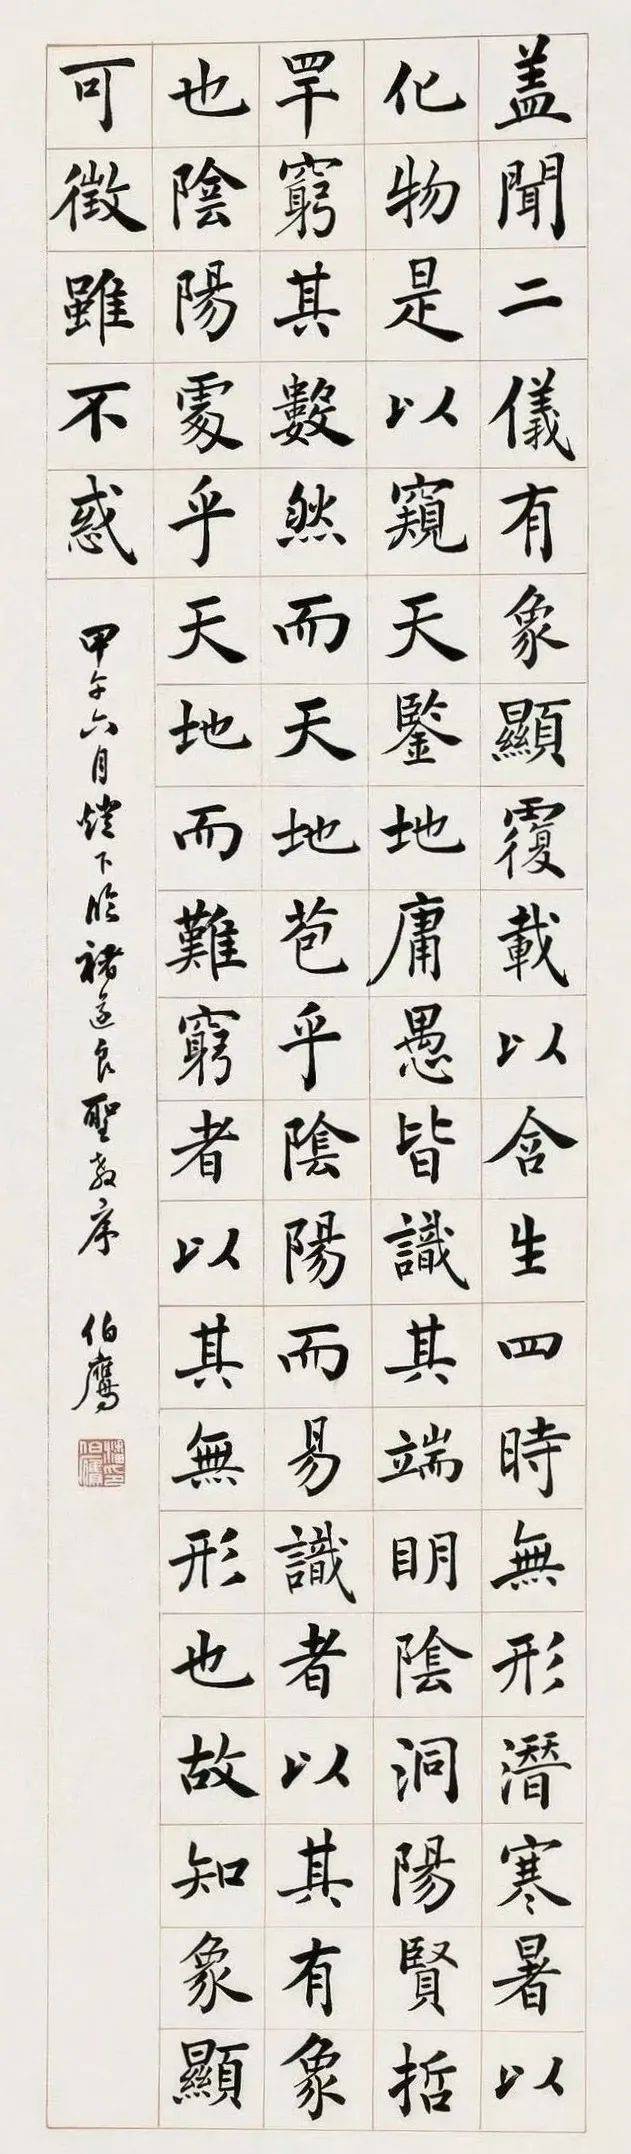 盖聞二儀有象顯覆載以含生四時無形潛寒暑以
化物是以窺天鑒地庸愚皆識其端明陰洞陽賢哲
罕窮其數然而天地苞乎陰陽而易識者以其有象
也陰陽處乎天地而難窮者以其無形也故知象顯
可徵雖不惑
甲午六月燈下臨褚遂良聖教序
伯鷹
潘氏伯鷹